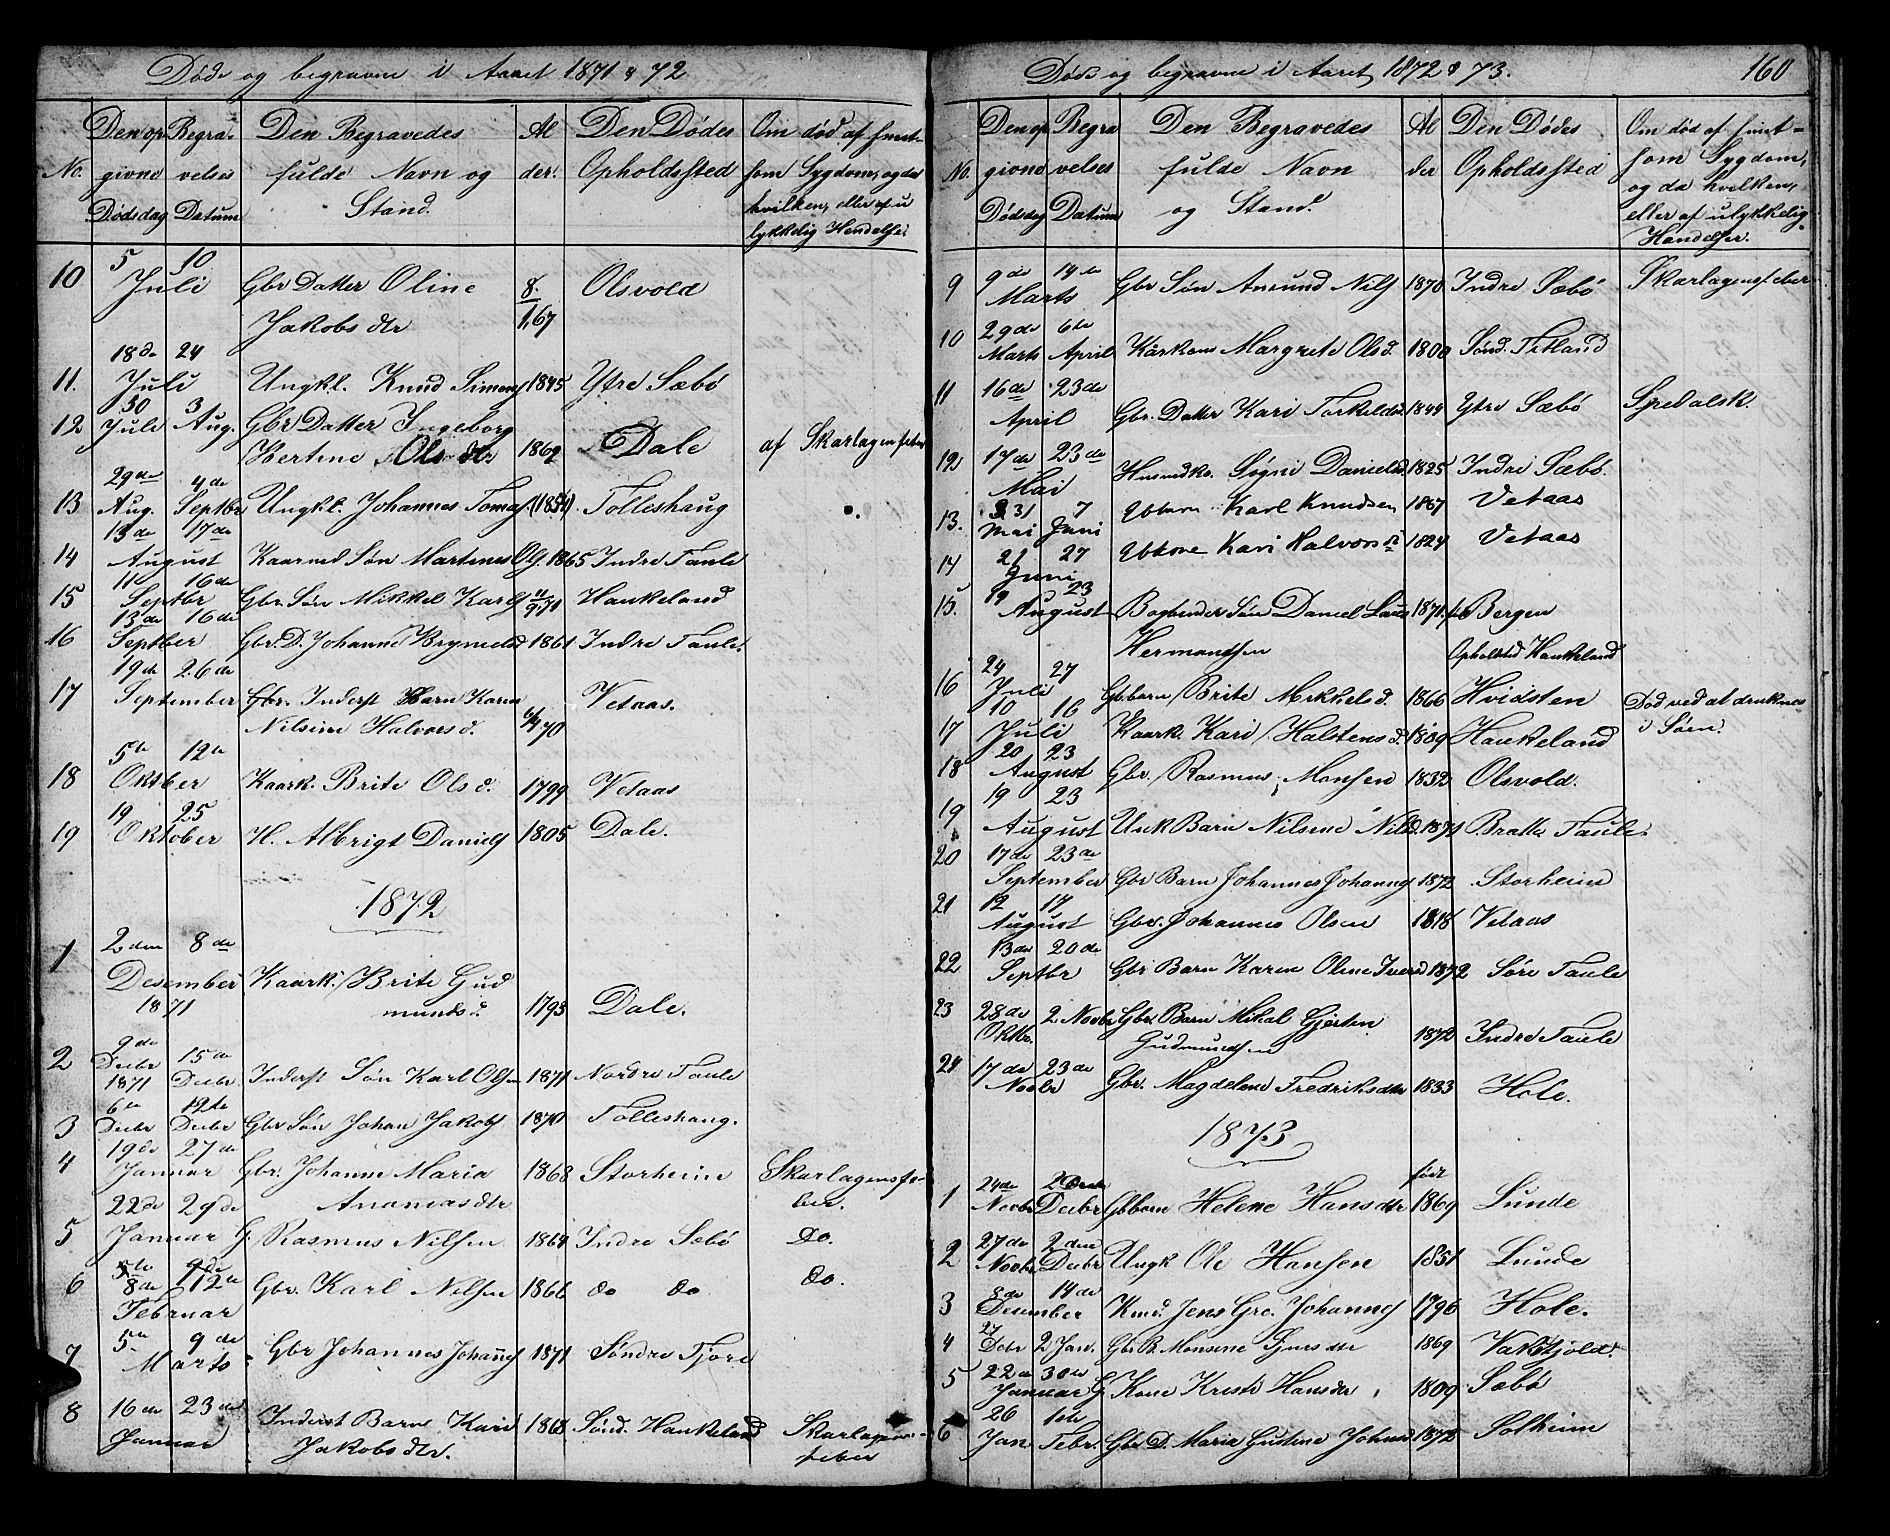 Døde og begravne i Aaret 1871 & 72
No.
Den op
givne
Dødsdag
Begra-
velses
Datum
Den Begravedes
fulde Navn og
Stand.
Al
der.
Den Dødes
Opholdssted
Om død af smit-
som Sygdom, og da
hvilken, eller af u
lykkelig Hendelse.
10 5 Juli 10 Gbr Datter Oline Jakobsdtr 8/1 67 Olsvold
11. 18de Juli 24 Ungkl. Knud Simens 1845 Ytre Sæbø
12 30 Juli 3 Aug. Gbr Datter Ingeborg Bertine Olsdtr 1869 Dale af Skarlagensfeber
13 29de Aug. 4de Septbr Ungkl. Johannes Tomas. (1854) Tolleshaug
14 13de August 17de Kaarmd Søn Martenus Ols. 1865 Indre Taule
15 11 Septbr 16de Gbr. Søn Mikkel Karls 11/9 71 Haukeland
16 13de Septber 16de Gbr. D. Johanne Brynielsd 1861 Indre Taule.
17 19de September 26de Gbr. Inderst Barn Karen Nilsine Halvorsd. 70 Vetaas.
18 5te Oktber 12te Kaark. Brite Olsd. 1799 Vetaas
19 19 Oktober 25 H. Albrigt Daniels 1805 Dale.
1872
1 2den Desember 1871 8de Kaark. Brite Gud
mundsd. 1793 Dale.
2 9de Decbr 1871 15de Decbr. Inderst Søn Karl Olsen 1871 Nordre Taule
3 6te Decbr 12te Decbr Gbr Søn Johan Jakobs 1870 Tolleshaug.
4 19de Januar 27de Gbr. Johanne Maria Ananiasdtr 1868 Storheim Skarlagensfe-
ber.
5 22de Januar 29de G. Rasmus Nilsen 1864 Indre Sæbø Do.
6 8de Februar 12te Gbr. Karl Nilsen 1866 do do. do.
7 5te Marts 9de Gbr Johannes Johannes 1871 Søndre Tjore
8 16de Januar 23de Inderst Barn Kari Jakobsdtr. 1868 Sønd. Haukeland Skarlagens-
feber
Døde og begravne i Aaret 1872 & 73. 160
No.
Den op
givne
Dødsdag
Begra
velses
Datum
Den Begravedes
fulde Navn
og Stand.
Al
der
Den Dødes
Opholdssted
Om død af smit-
som Sygdom,
og da hvilken,
eller af ulykkelig
Handelser.
9 9de Marts 14de Gbr Søn Amund Nils 1870 Indre Sæbø Skarlagensfeber
10 29de Marts 6te April Kårkone Margrete Olsd. 1800 Sønd. Titland
11 16de April 23de Gbr. Datter Kari Torkelsd 1844 Ytre Sæbø Spedalsk.
12 17de Mai 23de Husmdko. Søgni Danielsd. 1825 Indre Sæbø.
13. 31 Mai 7 Juni Gbbarn Karl Knudsen 1867 Vetaas
14 21 Juni 27 Gbkone Kari Halvorsd 1824 Vetaas
15. 19 August 23 Bogbinder Søn Daniel Laus
Hermansen 1871. Bergen
Opholdsted Haukeland
16 24 Juli 27 Gbbarn Brite Mikkelsd. 1866 Hvidsten Død ved at drukne
i Søen.
17 10 Juli 16 Kaark. Kari Halstensd. 1809 Haukeland
18 20 August 23 Gbr. Rasmus Monsen 1832 Olsvold.
19 19 August 23 Barn Nilsine Nilsd. 1871 Bratte Taule.
20 17de September 23de Gbr Barn Johannes Johannes 1872 Storheim
21 12 August 17 Gbr. Johannes Olsen 1818 Vetaas
22 13de Septbr 20de Gbr Barn Karen Oline Iversd 1872 Søre Taule
23 28de Oktbr. 2 Novbr Gbr. Barn Mikal Gjerten
Gudmundsen 1872 Indre Taule
24 17de Novbr 23de Gbr. Magdelene Fredriksdtr 1833 Hole.
1873
født
1 24de Novbr Decbr Gbbarn Helene Hansdtr 1869 Lunde
2 27de Novbr 2den Decbr Ungk Ole Hansen 1851 Lunde
3 8de Desember 14de Kmd. Jens Gro. Johannes 1796 Hole.
4 27 Debr 2 Jan. Gbr B. Monsene 1869 Vaktkjold.
5 22de Januar 30te G Kone Kristi Hansdtr 1809 Sæbø
6 26 Jan 1ste Febr. Gbr D. Maria Gustine Johnsd 1872 Solheim